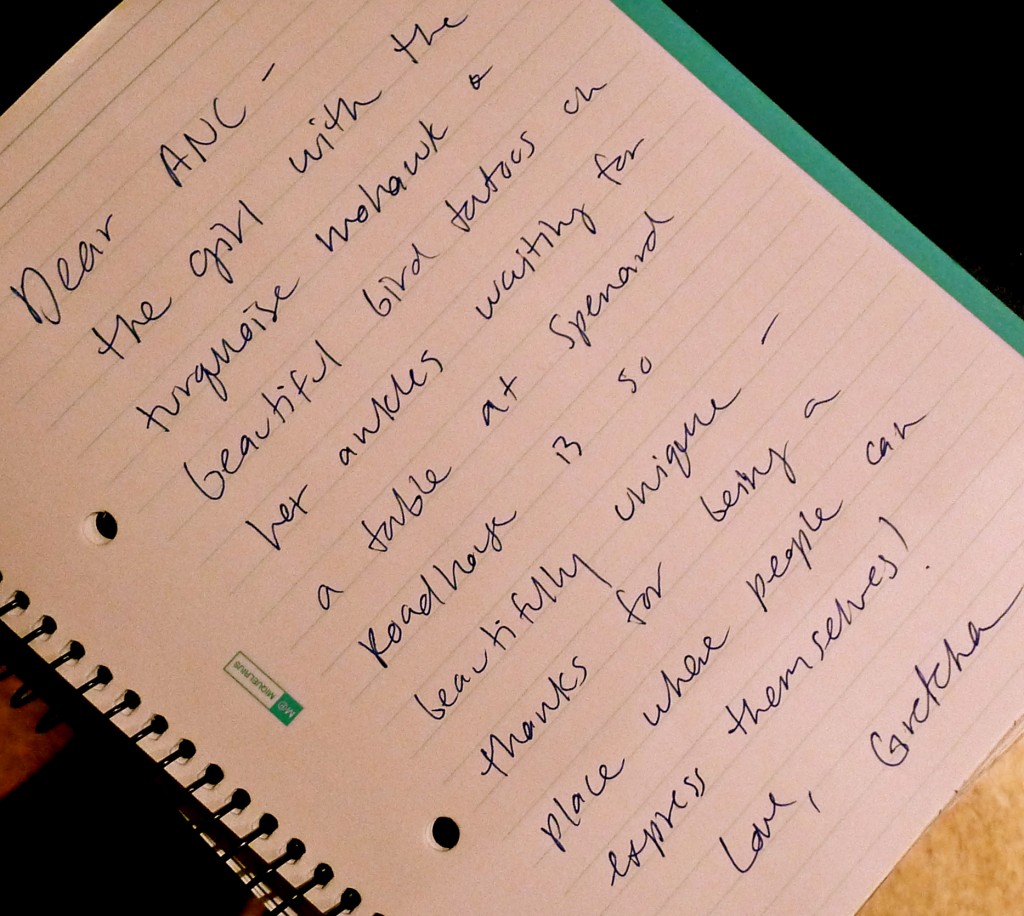 Dear ANC -
the girl with the
turquoise mohawk &
beautiful bird tatoos on
her ankles waiting for
a table at Spenard
Roadhouse is so
beautifully unique -
thanks for being a
place where people can
express themselves!
Love, Gretchen
MIQUELRIUS